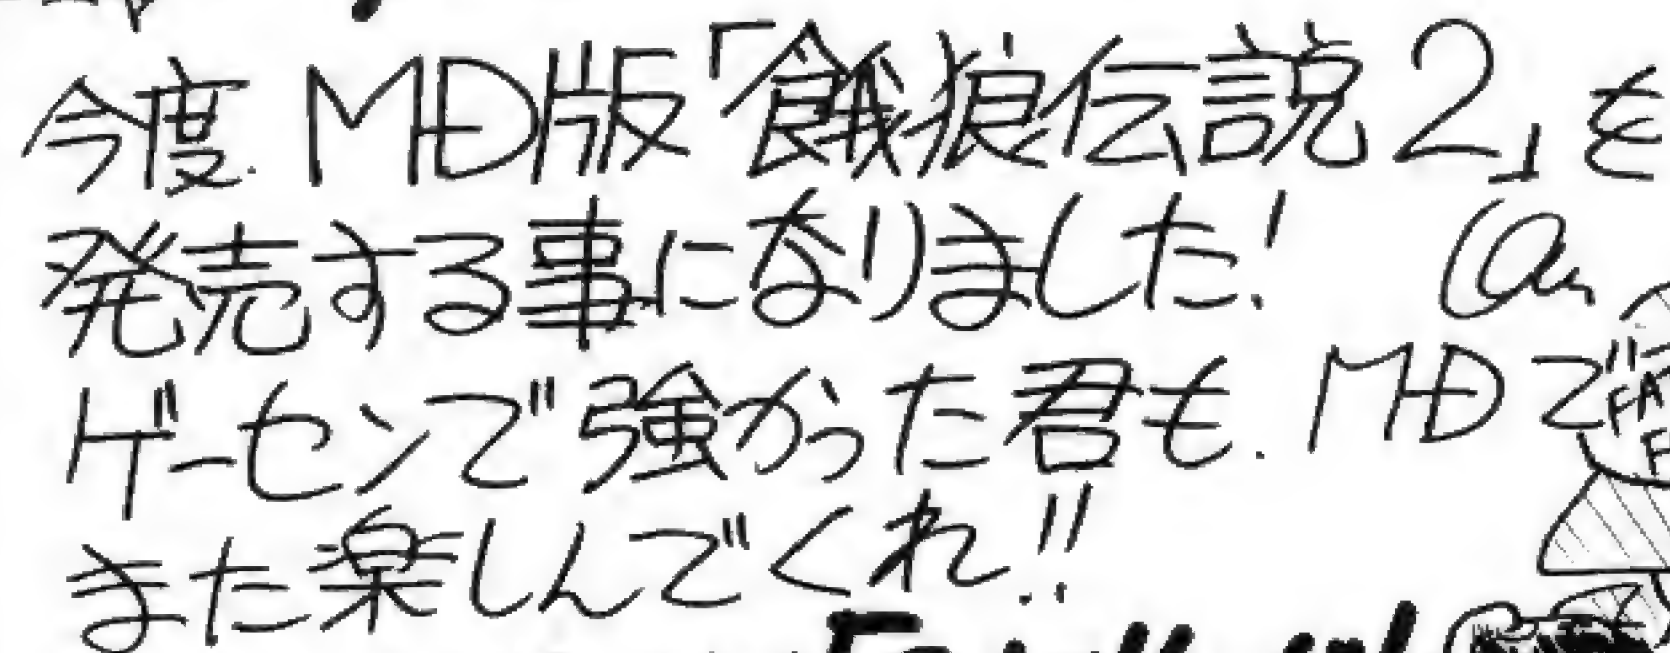 今度 MD版「餓狼伝説2」を
発売する事になりました!
ゲーセンで強かった君も. MDで
また楽しんでくれ!!
FA
F